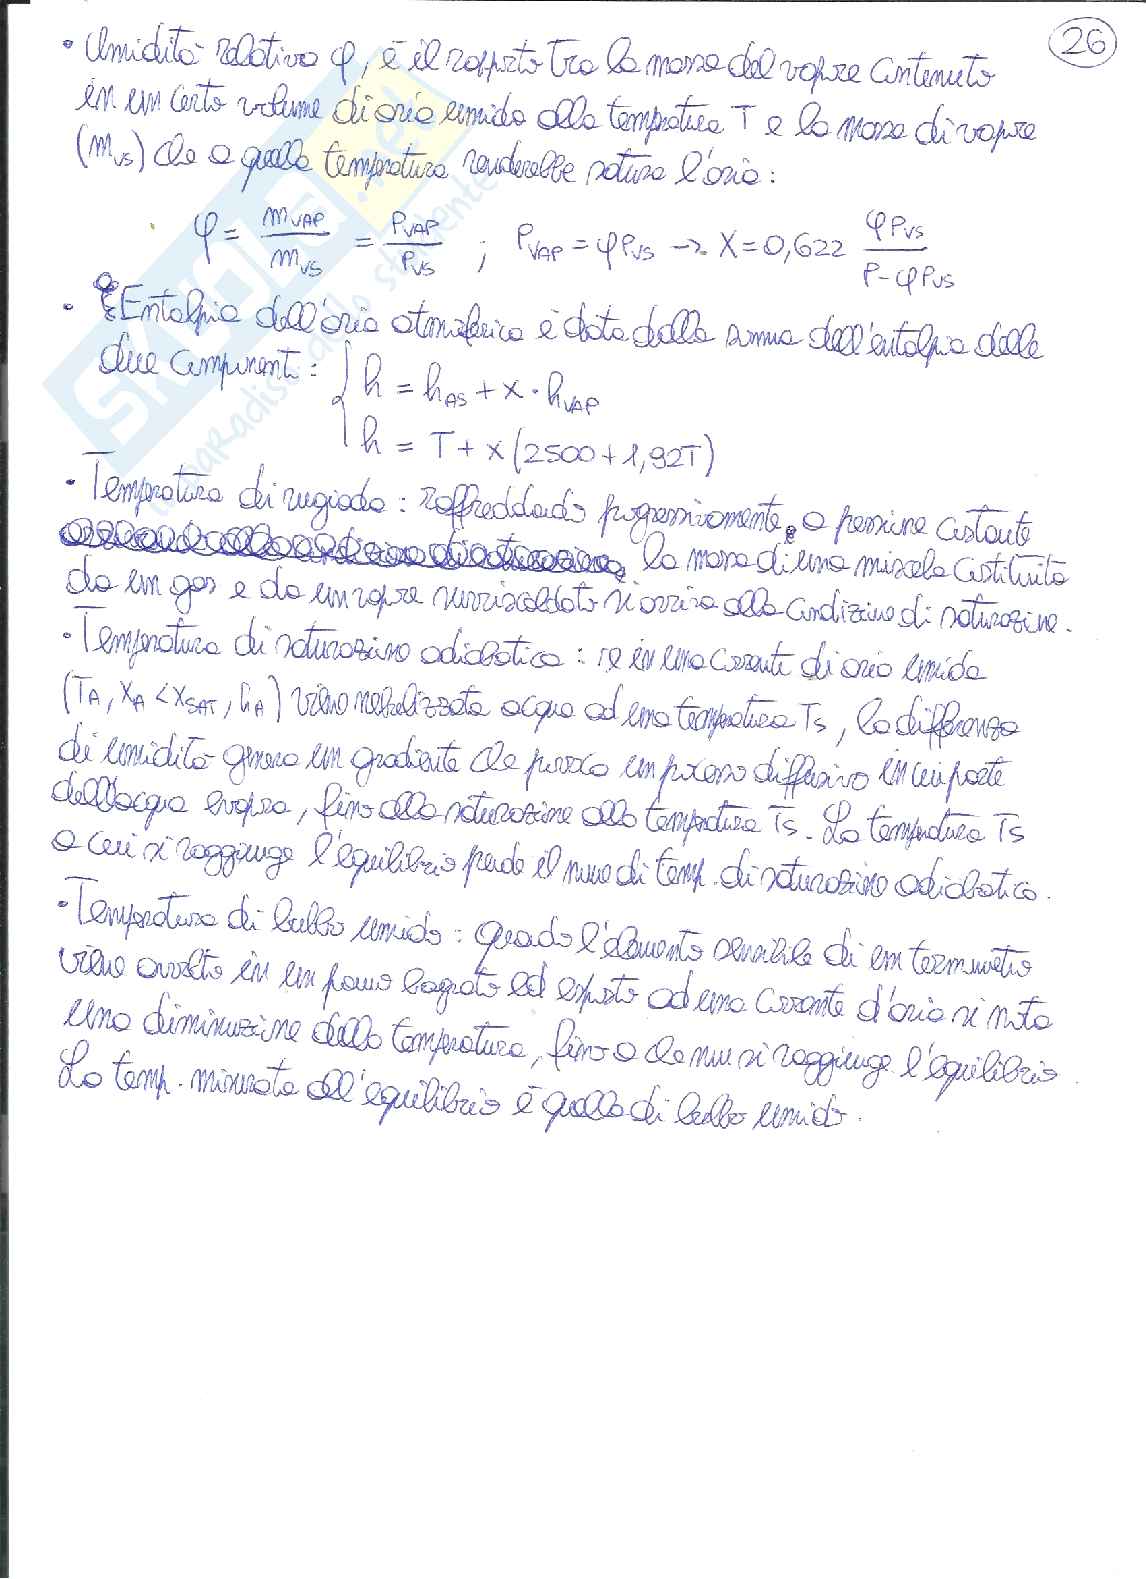 26
• Umidità relativa φ, è il rapporto tra la massa del vapore contenuto
in un certo volume di aria umida alla temperatura T e la massa di vapore
(mvs) che a quella temperatura renderebbe satura l'aria:
φ = mVAP/mVS = PVAP/PVS ; PVAP = φPVS → X = 0,622 φPVS/(P-φPVS)
• Entalpia dell'aria atmosferica è data dalla somma dell'entalpia delle
due componenti: h = hAS + x · hVAP
h = T + x(2500 + 1,92T)
• Temperatura di rugiada: raffreddando progressivamente, a pressione costante
la massa di una miscela costituita
da un gas e da un vapore surriscaldato si arriva alla condizione di saturazione.
• Temperatura di saturazione adiabatica: se in una corrente di aria umida
(TA, XA < XSAT, hA) viene nebulizzata acqua ad una temperatura Ts, la differenza
di umidità genera un gradiente che provoca un processo diffusivo in cui parte
dell'acqua evapora, fino alla saturazione alla temperatura Ts. La temperatura Ts
a cui si raggiunge l'equilibrio prende il nome di temp. di saturazione adiabatica.
• Temperatura di bulbo umido: quando l'elemento sensibile di un termometro
viene avvolto in un panno bagnato ed esposto ad una corrente d'aria si nota
una diminuzione della temperatura, fino a che non si raggiunge l'equilibrio.
La temp. misurata all'equilibrio è quella di bulbo umido.
skuola.net
il paradiso dello studente